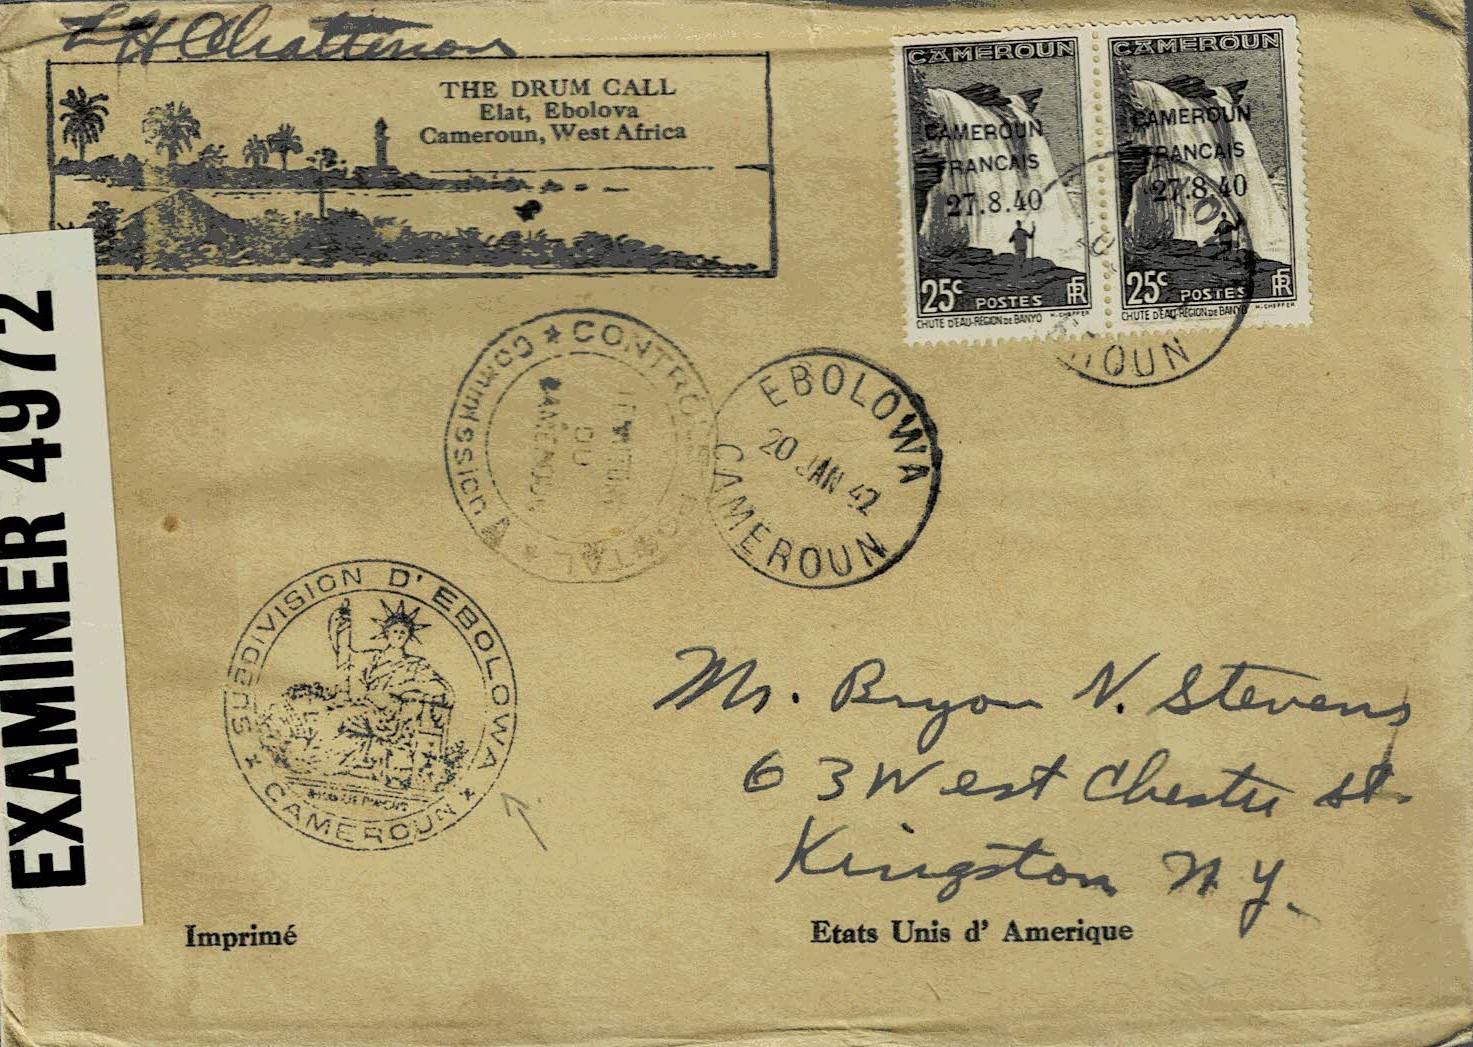 THE DRUM CALL
Elat, Ebolova
Cameroun, West Africa
CAMEROUN
CAMEROUN
FRANCAIS
27.8.40
25c POSTES RF
CHUTE D'EAU-RÉGION DE BANYO H. CHEFFER
CAMEROUN
CAMEROUN
FRANCAIS
27.8.40
25c POSTES RF
CHUTE D'EAU-RÉGION DE BANYO H. CHEFFER
EXAMINER 4972
CONTROLE POSTAL
Commission A
DU
CAMEROUN
EBOLOWA
20 JAN 42
CAMEROUN
SUBDIVISION D'EBOLOWA
CAMEROUN
Mr. Bryon N. Stevens
63 West Chester St.
Kingston N.Y.
Imprimé
Etats Unis d' Amerique